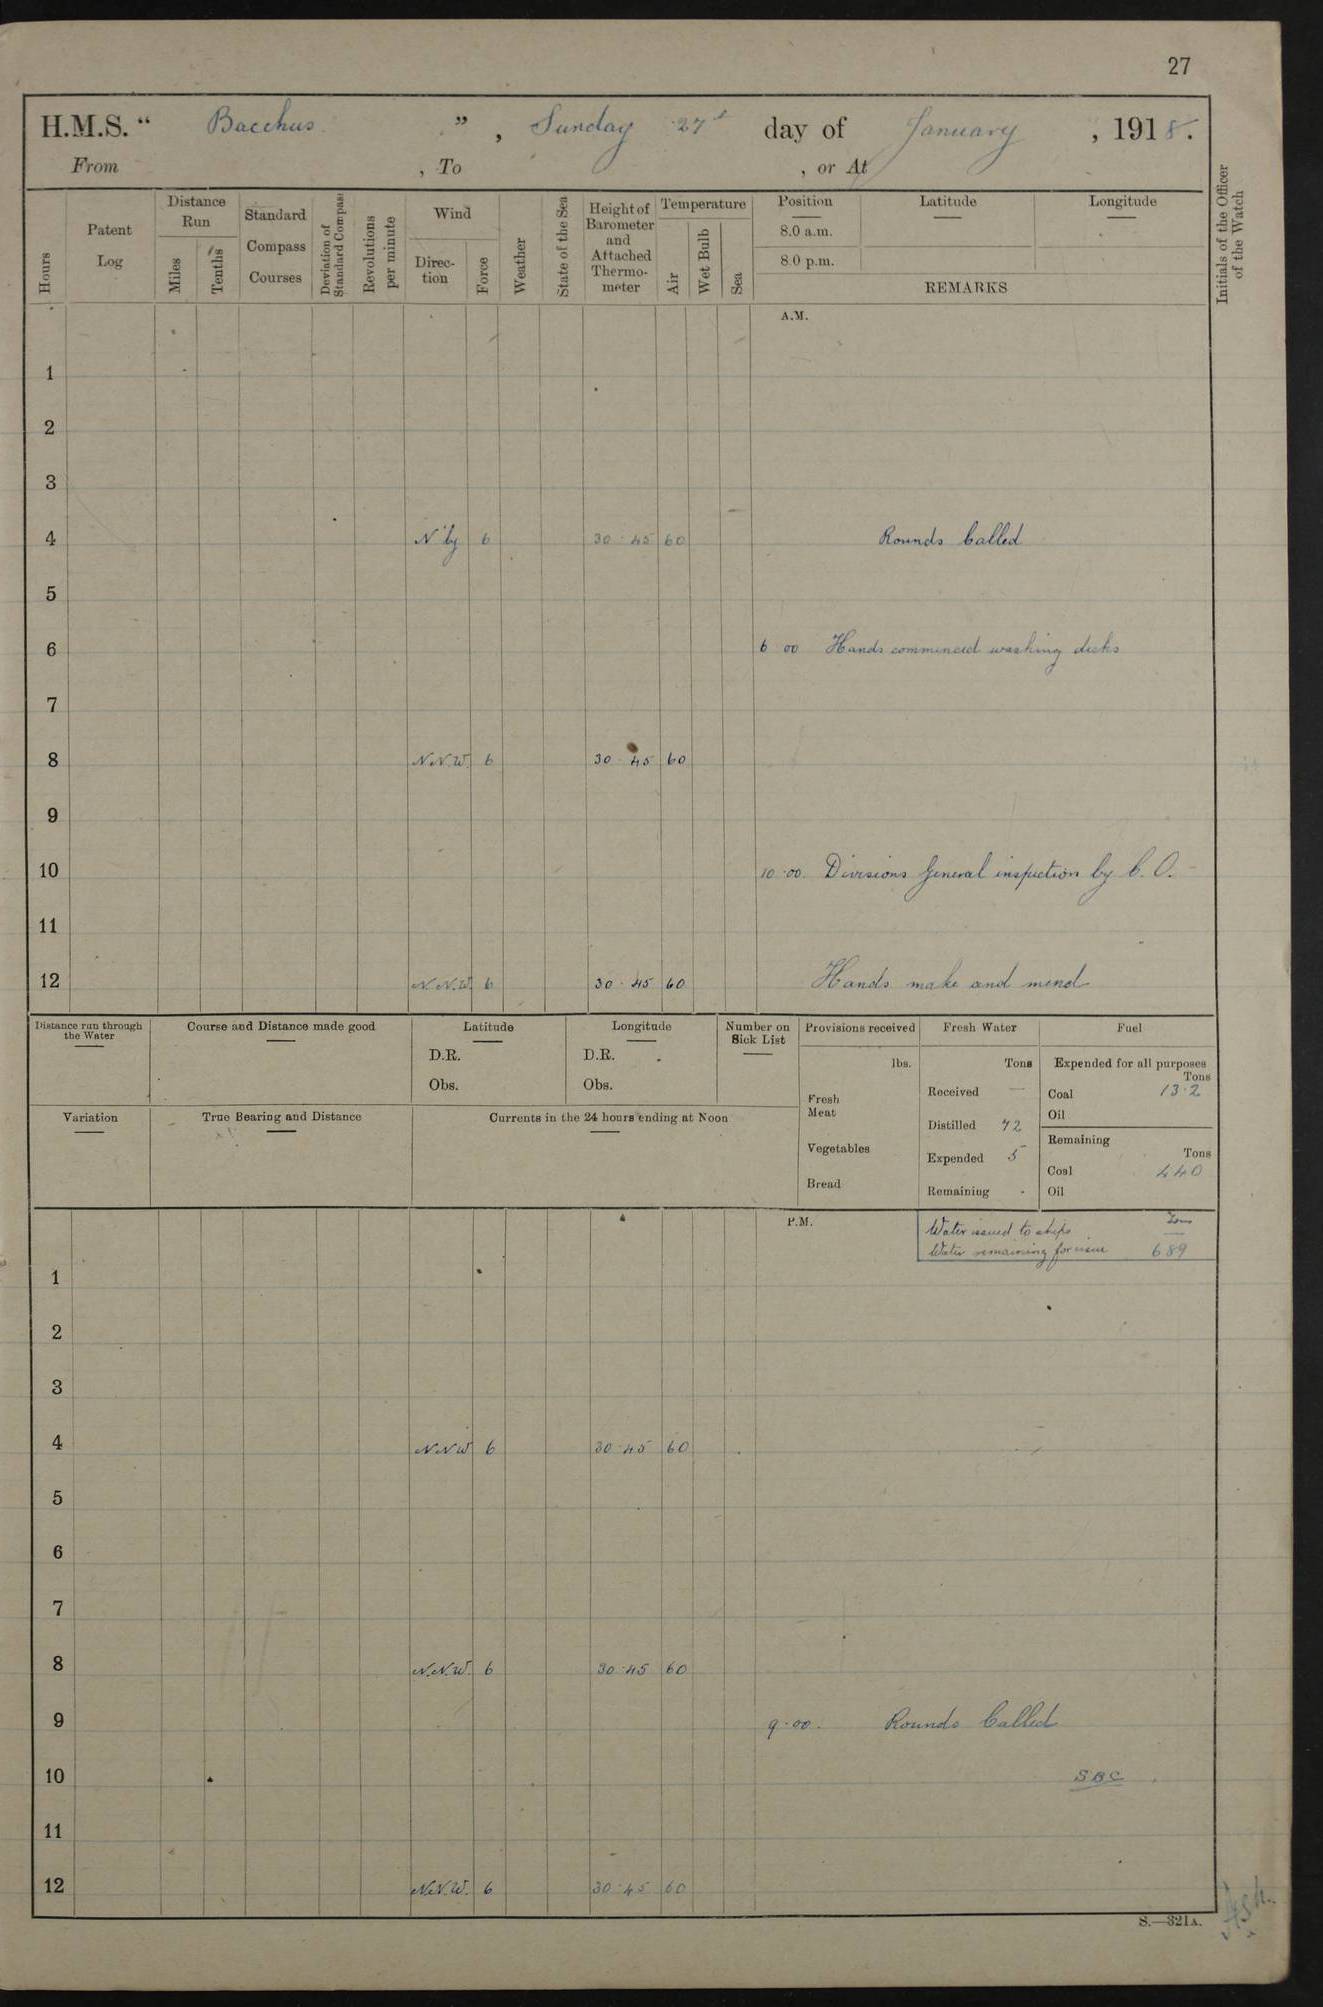 27
H.M.S. “ Bacchus ” , Sunday 27th day of January , 1918.
From , To , or At
Hours
Patent Log
Distance Run
Miles
Tenths
Standard Compass Courses
Deviation of Standard Compass
Revolutions per minute
Wind
Direc-tion
Force
Weather
State of the Sea
Height of Barometer and Attached Thermo-meter
Temperature
Air
Wet Bulb
Sea
Position
8.0 a.m.
8.0 p.m.
Latitude
Longitude
REMARKS
Initials of the Officer of the Watch
A.M.
1
2
3
4 N'ly 6 30·45 60 Rounds Called
5
6 6 00 Hands commenced washing decks
7
8 N.N.W. 6 30·45 60
9
10 10·00. Divisions General inspection by C.O.
11
12 N.N.W 6 30·45 60 Hands make and mend
Distance run through the Water
Course and Distance made good
Latitude
D.R.
Obs.
Longitude
D.R.
Obs.
Number on Sick List
Provisions received
lbs.
Fresh Meat
Vegetables
Bread
Fresh Water
Tons
Received —
Distilled 72
Expended 5
Remaining -
Fuel
Expended for all purposes
Tons
Coal 13·2
Oil
Remaining
Tons
Coal 440
Oil
Variation
True Bearing and Distance
Currents in the 24 hours ending at Noon
P.M.
Tons
Water issued to ships —
Water remaining for issue 689
1
2
3
4 N.N.W 6 30·45 60
5
6
7
8 N.N.W. 6 30·45 60
9 9·00. Rounds Called
10 SBC
11
12 N.N.W. 6 30·45 60
S.—321A.